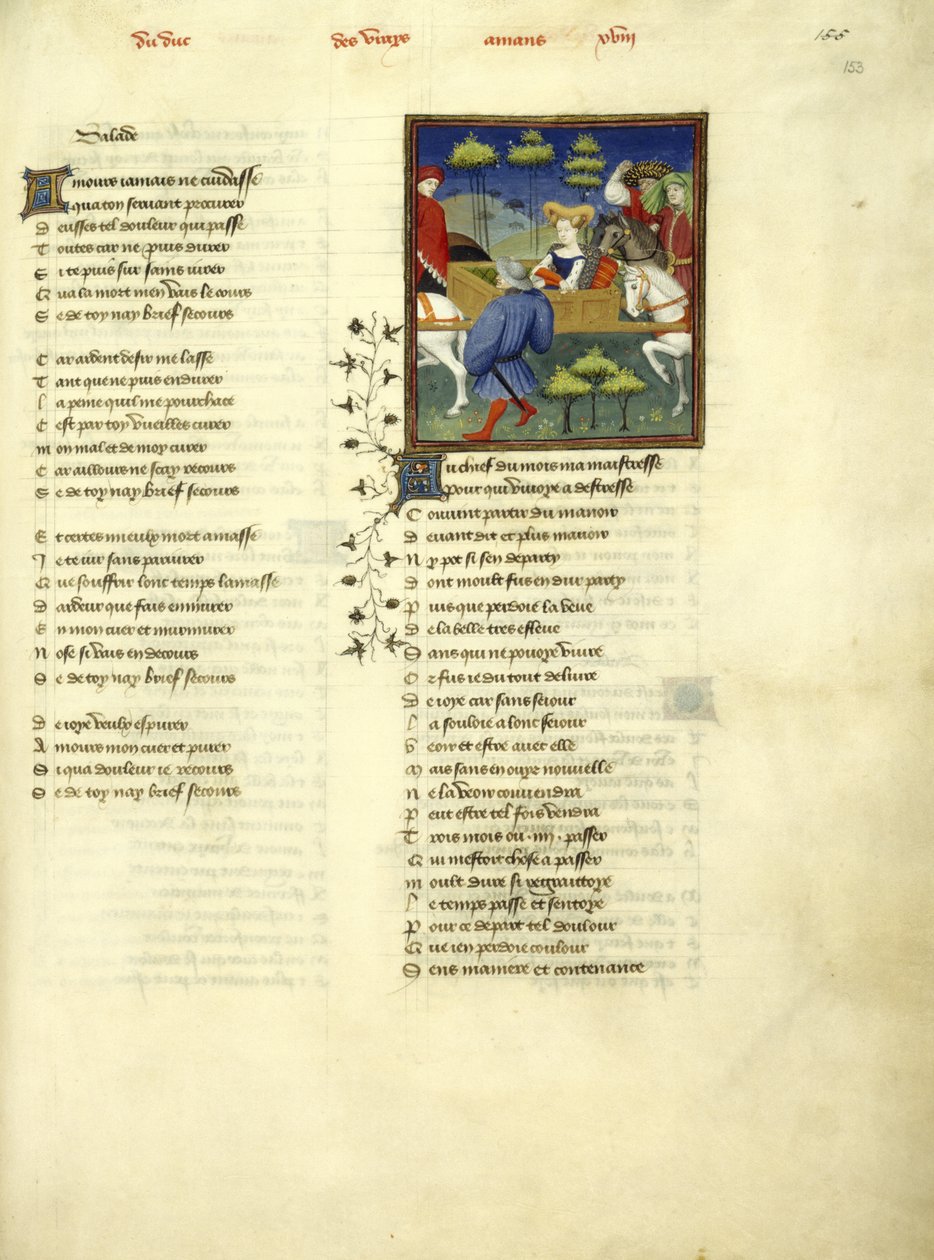 du duc des vrays amans xviii
155
153
Balade
Amours iamais ne cuidasse
Qua ton seruant procurer
Deusses tel douleur qui passe
Toutes car ne puis durer
Si te puis sur sains iurer
Qua la mort men vais le cours
Se de toy nay brief secours
Car ardent desir me lasse
Tant que ne puis endurer
La peine quil me pourchace
Cest par toy vueilles curer
mon mal et de moy curer
Car ailleurs ne scay recours
Se de toy nay brief secours
Et certes mieulx mort amasse
Ie te iur sans pariurer
Que souffrir lonc temps la masse
Dardeur que fais enmurer
En mon cuer et murmurer
Nose si vais en decours
Se de toy nay brief secours
De ioye veulx espurer
Amours mon cuer et purer
Si qua douleur ie recours
Se de toy nay brief secours
Au chief du mois ma maistresse
Pour qui viuoye a destresse
Couuint partir du manoir
Deuant dit et plus manoir
Ny pot si sen departy
Dont moult fus en dur party
Puis que perdoie la veue
De la belle tres esleue
Sans qui ne pouoye viure
Or fus ie du tout deliure
De ioye car sans seiour
La souloie a lonc seiour
Veoir et estre auec elle
Mais sans en ouyr nouuelle
Ne la veoir conuendra
Peut estre tel fois vendra
Trois mois ou .iiii. passer
Qui mestoit chose a passer
moult dure si regraittoye
Le temps passe et sentoye
Pour ce depart tel doulour
Que ien perdoie coulour
Sens maniere et contenance